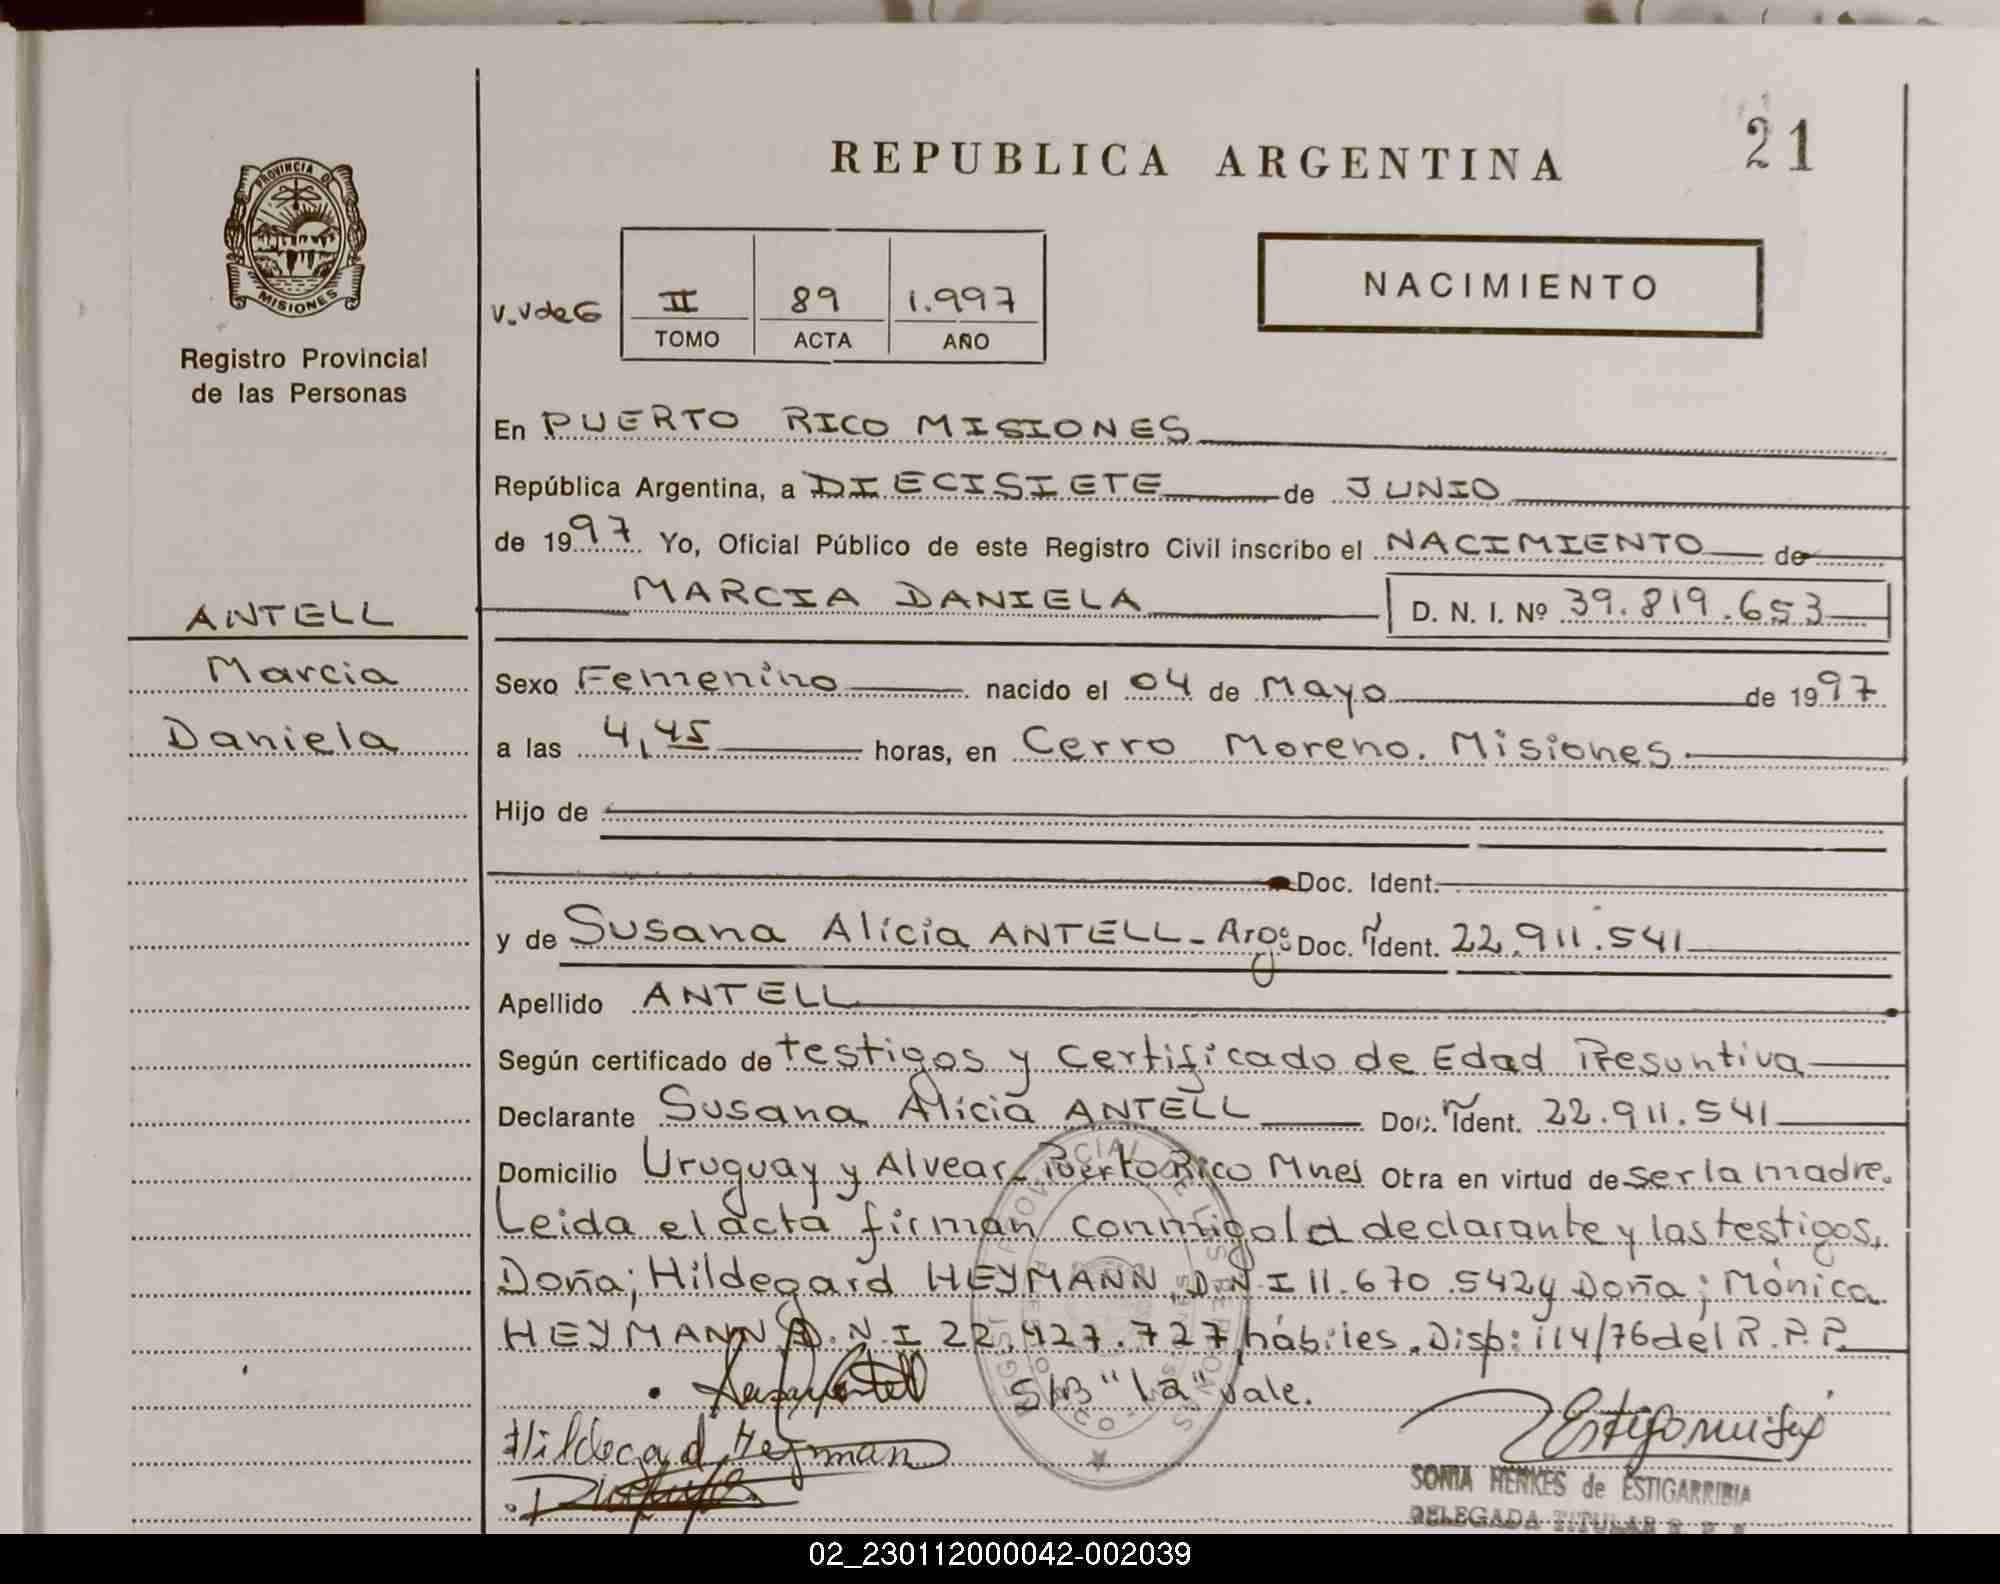 REPUBLICA ARGENTINA
21
PROVINCIA DE
MISIONES
Registro Provincial
de las Personas
V.V de G
II 89 1.997
TOMO ACTA AÑO
NACIMIENTO
En PUERTO RICO MISIONES
República Argentina, a DIECISIETE de JUNIO
de 1997 Yo, Oficial Público de este Registro Civil inscribo el NACIMIENTO de
MARCIA DANIELA D. N. I. Nº 39.819.653
ANTELL
Marcia
Daniela
Sexo Femenino nacido el 04 de Mayo de 1997
a las 4,45 horas, en Cerro Moreno. Misiones.
Hijo de
Doc. Ident.
y de Susana Alicia ANTELL - Arg: Doc. Ident. 22.911.541
Apellido ANTELL
Según certificado de testigos y certificado de Edad Presuntiva
Declarante Susana Alicia ANTELL Doc. Ident. 22.911.541
Domicilio Uruguay y Alvear. Puerto Rico Mnes Otra en virtud de ser la madre.
Leida el acta firman conmigo la declarante y las testigos,
Doña; Hildegard HEYMANN, D.N.I 11.670.542 y Doña; Mónica
HEYMANN D.N.I 22.427.727, hábiles. Disp: 114/76 del R.P.P.
S/B "la" vale.
Hildegard Heyman
SONIA HENKES de ESTIGARRIBIA
DELEGADA TITULAR R. P. P.
02_230112000042-002039